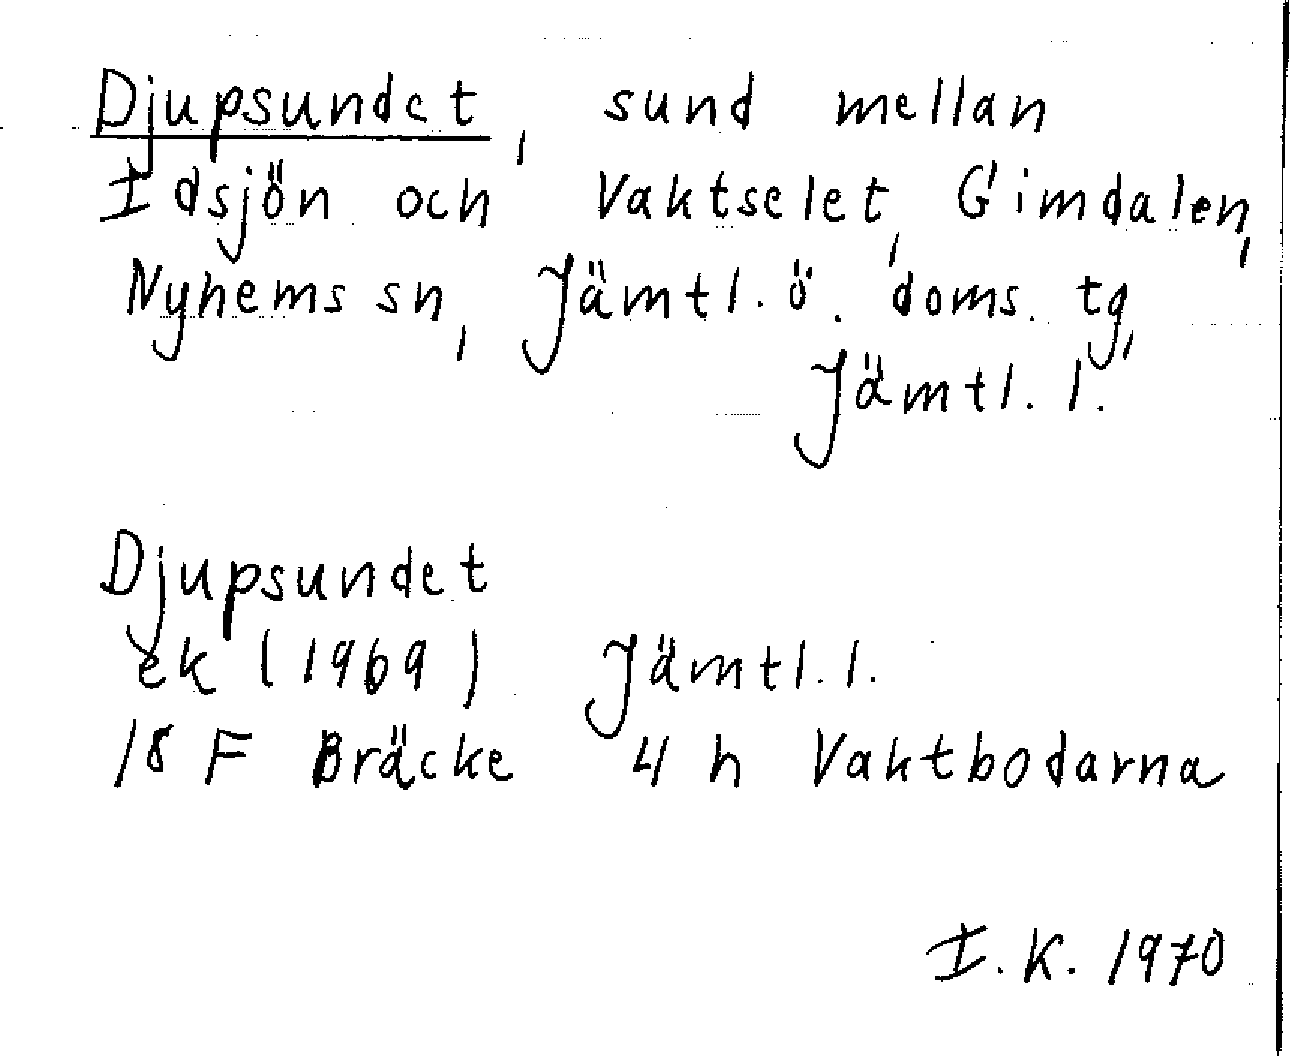 Djupsundet, sund mellan
Idsjön och Vaktselet, Gimdalen,
Nyhems sn, Jämtl. ö. doms. tg,
Jämtl. l.
Djupsundet
ek (1969) Jämtl. l.
18 F Bräcke 4 h Vaktbodarna
I. K. 1970